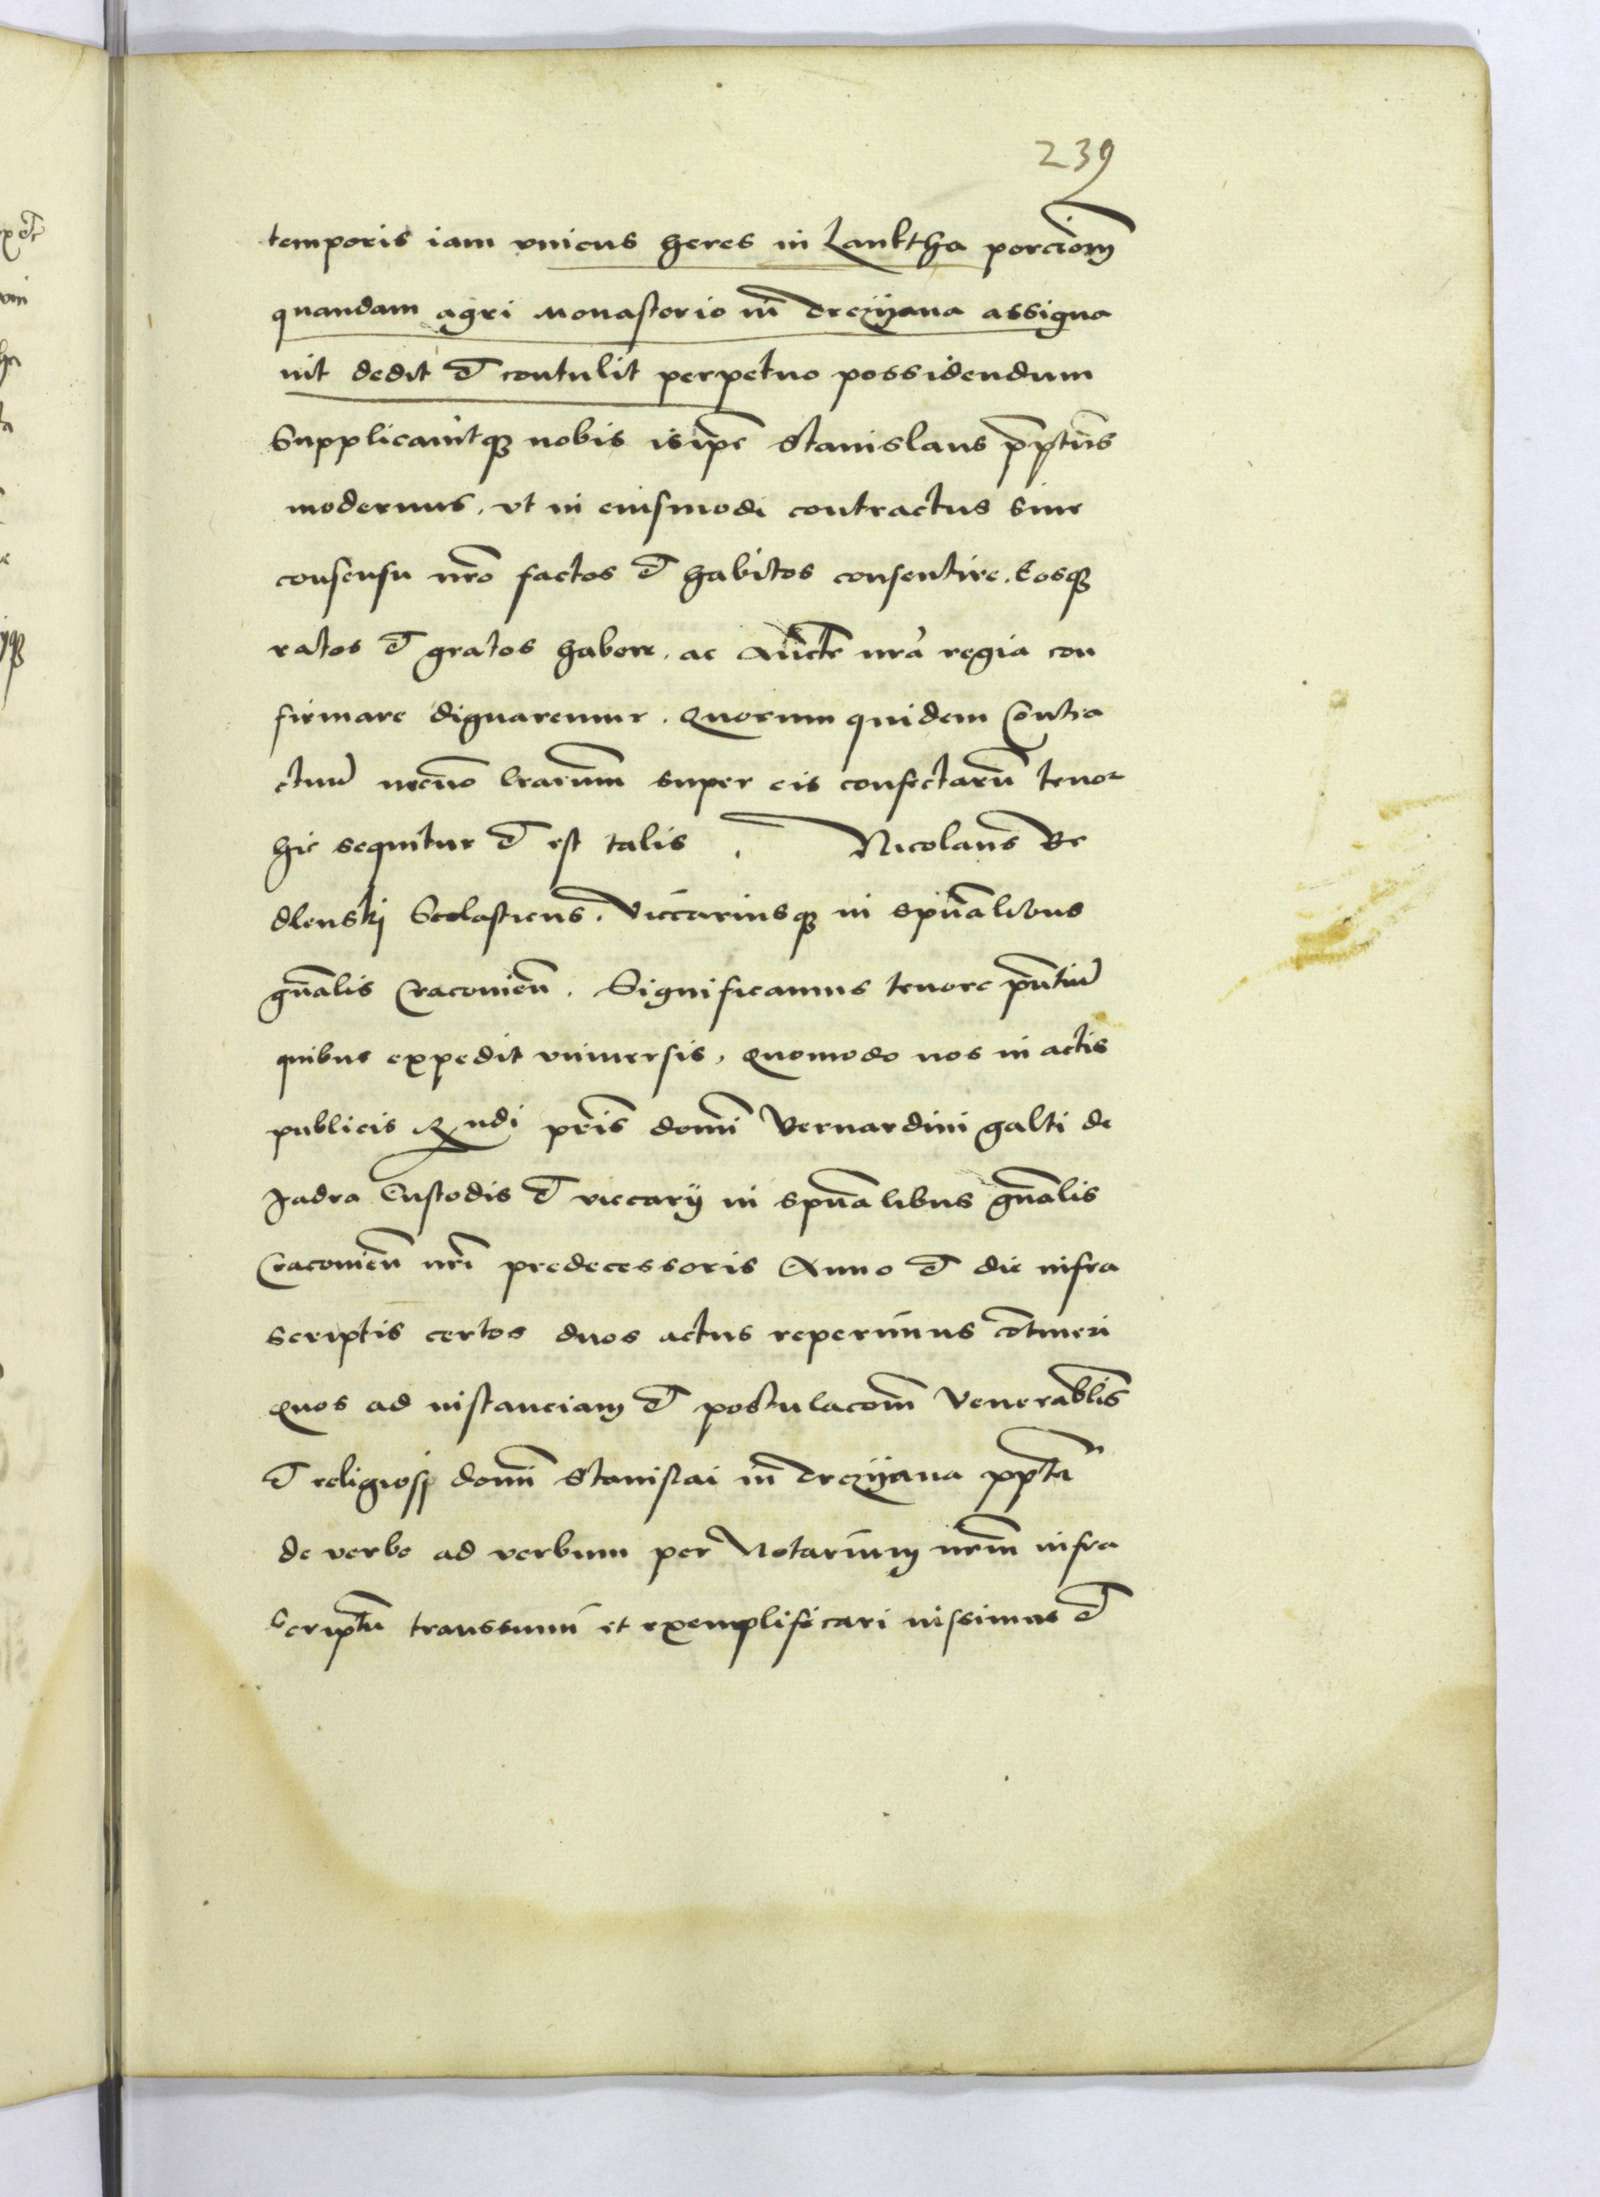 239
temporis iam vnicus heres in Lanktha porcionẽ
quandam agri Monasterio in Trezijana assigna
uit dedit et contulit perpetuo possidendum
Supplicauitque nobis is ipẽ Stanislaus pͬptũs
modernus, vt in eiusmodi contractus sine
consensu nrõ factos et habitos consentire. Eosque
ratos et gratos habere, ac Auctẽ nrã regia con
firmare dignaremur. Quorum quidem Contra
ctuũ necnõ lrarum super eis confectarũ tenor
hic sequitur et est talis . Nicolaus Be
dlenskj Scolasticus, Viccariusque in spũalibus
gñalis Cracouieñ. Significamus tenore pñtiũ
quibus expedit vniuersis, quomodo nos in actis
publicis Rñdi pr̃is domĩ Bernardini galli de
Jadra Custodis et viccarij in spũalibus gñalis
Cracouieñ nrĩ predecessoris Anno et die infra
scriptis certos duos actus reperimus cõtineri
Quos ad instanciam et postulacõm Venerabilis
et religiosi domĩ Stanislai in Trezijana ppͭi
de verbo ad verbum per Notarium nrm̃ infra
scriptũ transsumi et exemplificari iussimus et